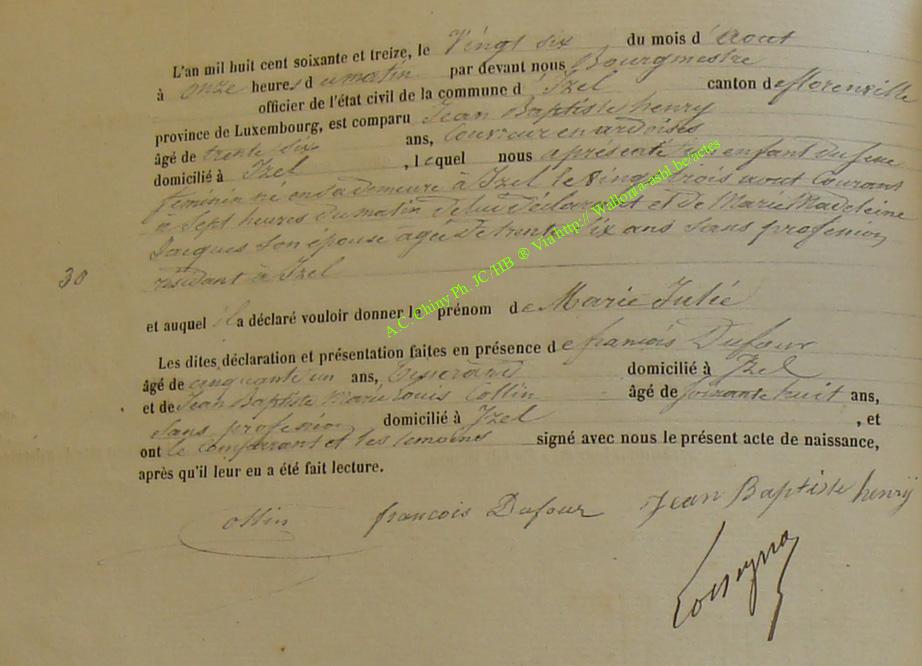 L'an mil huit cent soixante et treize, le Vingt six du mois d'Aout
à onze heures du matin par devant nous Bourgmestre
officier de l'état civil de la commune d'Izel canton de florenville
province de Luxembourg, est comparu Jean Baptiste henry
âgé de trente six ans, Couvreur en ardoises
domicilié à Izel, lequel nous a présenté un enfant du sexe
féminin né en sa demeure à Izel le Vingt trois aout Courant
à Sept heures du matin de lui déclarant et de Marie Madeleine
Jacques son épouse agée de trente six ans sans profession
résidant à Izel
30
et auquel il a déclaré vouloir donner le prénom de Marie Julie
Les dites déclaration et présentation faites en présence de françois Dufour
âgé de cinquante un ans, domicilié à Izel
et de Jean Baptiste Marie Louis Collin âgé de soixante huit ans,
sans profession domicilié à Izel, et
ont le Comparant et les témoins signé avec nous le présent acte de naissance,
après qu'il leur eu a été fait lecture.
Collin francois Dufour Jean Baptiste henry
A.C. Chiny Ph. JC/HB ® Via http:// Wallonia-asbl.be/actes